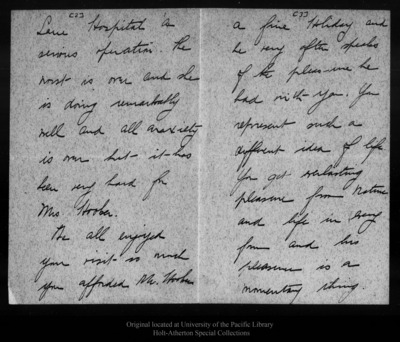 [2]
Lane Hospital a
serious operation. The
worst is over and she
is doing remarkably
well and all anxiety
is over but it has
been very hard for
Mrs. Hooker.
We all enjoyed
your visit so much
you afforded Mr. Hooker
[3]
a fine Holiday and
he very often speaks
of the pleasure he
had with you. You
represent such a
different idea of life
You get everlasting
pleasure from Nature
and life in every
form and his
pleasure is a
momentary thing.
Original located at University of the Pacific Library
Holt-Atherton Special Collections